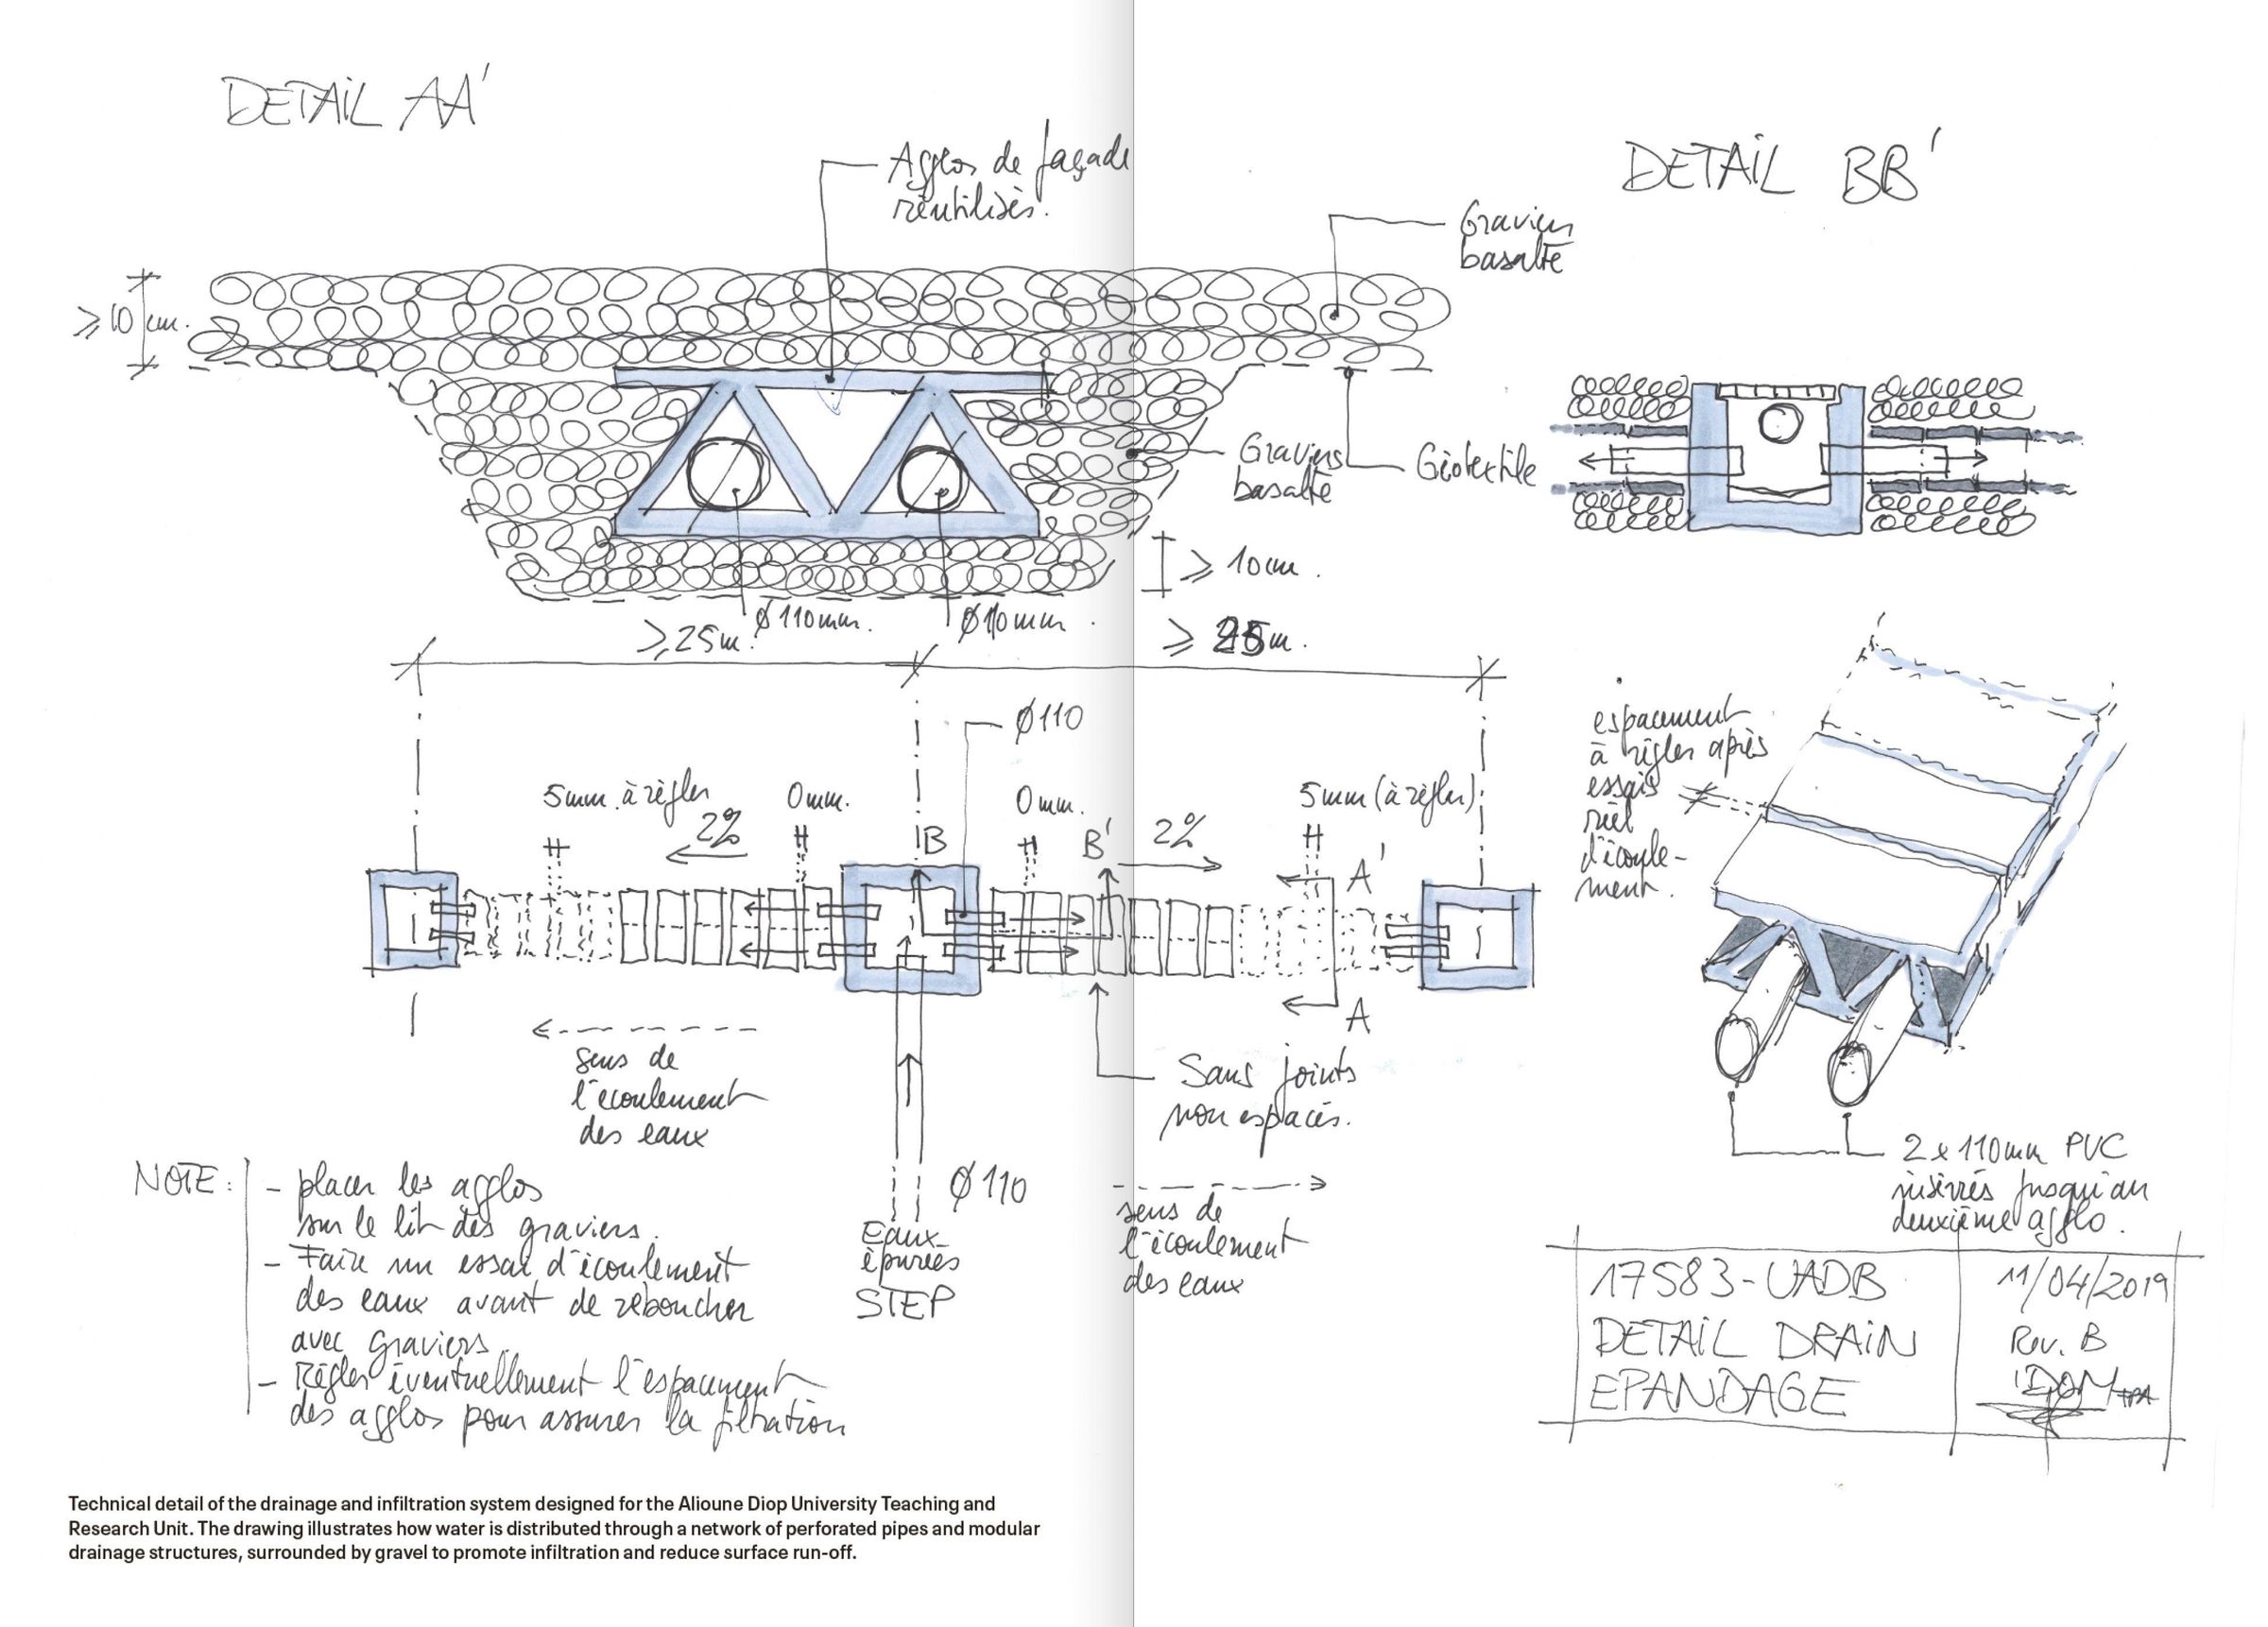 DETAIL AA'
Agglos de façade
réutilisés.
DETAIL BB'
Graviers
basalte
≥ 10 cm.
Graviers
basalte
Géotextile
≥ 10 cm.
Ø 110mm.
Ø 110mm.
≥ 25m.
≥ 25m.
Ø 110
espacement
à régler après
essais
réel
d'écoule-
ment.
5mm. à régler
0mm.
0mm.
5mm (à régler)
2%
B
B'
2%
A'
A
sens de
l'écoulement
des eaux
Sans joints
non espacés.
2 x 110mm PVC
insérés jusqu'au
deuxième agglo.
NOTE:
- placer les agglos
sur le lit des graviers.
- Faire un essai d'écoulement
des eaux avant de reboucher
avec graviers.
- Régler éventuellement l'espacement
des agglos pour assurer la filtration
Ø 110
Eaux
épurées
STEP
sens de
l'écoulement
des eaux
17583-UADB
DETAIL DRAIN
EPANDAGE
11/04/2019
Rev. B
IDOM
Technical detail of the drainage and infiltration system designed for the Alioune Diop University Teaching and
Research Unit. The drawing illustrates how water is distributed through a network of perforated pipes and modular
drainage structures, surrounded by gravel to promote infiltration and reduce surface run-off.